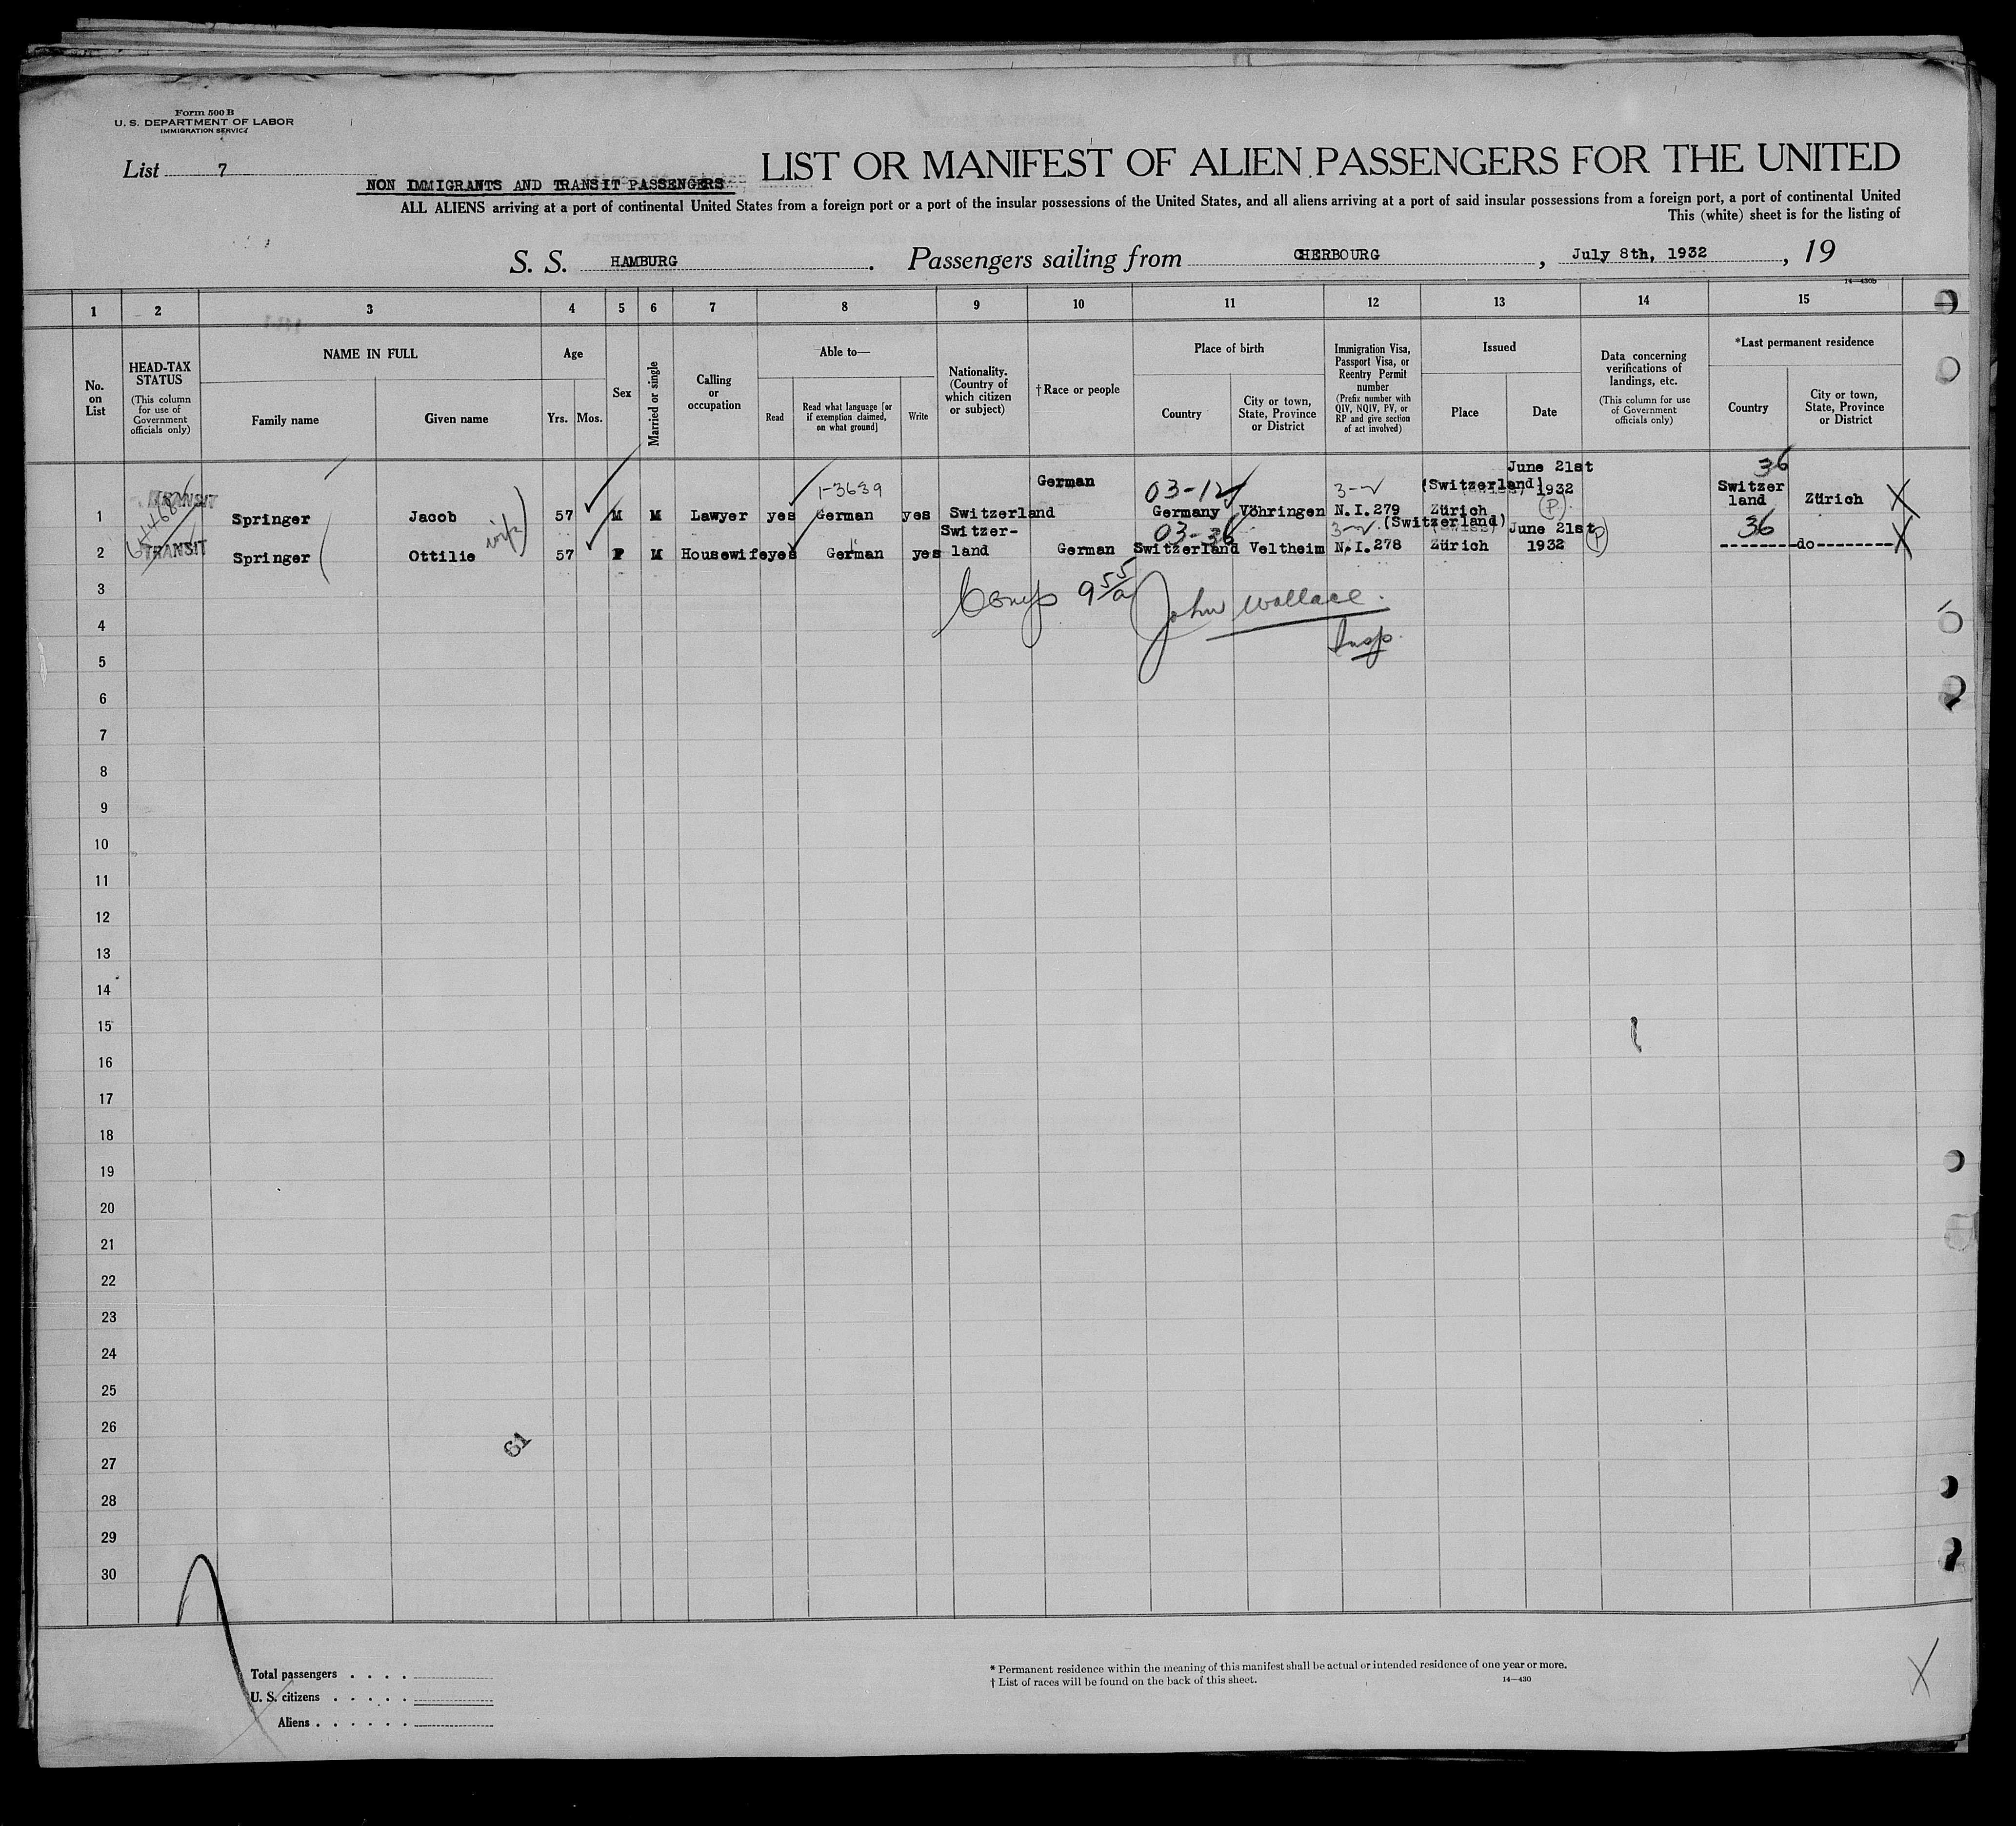 Form 500 B
U. S. DEPARTMENT OF LABOR
IMMIGRATION SERVICE
List 7
NON IMMIGRANTS AND TRANSIT PASSENGERS
LIST OR MANIFEST OF ALIEN PASSENGERS FOR THE UNITED
ALL ALIENS arriving at a port of continental United States from a foreign port or a port of the insular possessions of the United States, and all aliens arriving at a port of said insular possessions from a foreign port, a port of continental United
This (white) sheet is for the listing of
S. S. HAMBURG. Passengers sailing from CHERBOURG, July 8th, 1932, 19
14—430b
1 2 3 4 5 6 7 8 9 10 11 12 13 14 15
No. on List
HEAD-TAX STATUS
(This column for use of Government officials only)
NAME IN FULL
Family name
Given name
Age
Yrs.
Mos.
Sex
Married or single
Calling or occupation
Able to—
Read
Read what language [or if exemption claimed, on what ground]
Write
Nationality. (Country of which citizen or subject)
†Race or people
Place of birth
Country
City or town, State, Province or District
Immigration Visa, Passport Visa, or Reentry Permit number
(Prefix number with QIV, NQIV, PV, or RP and give section of act involved)
Issued
Place
Date
Data concerning verifications of landings, etc.
(This column for use of Government officials only)
*Last permanent residence
Country
City or town, State, Province or District
June 21st 36
TRANSIT 1-3639 German 03-12 3-✓ (Switzerland) 1932 Switzer land
1 Springer Jacob 57 M M Lawyer yes German yes Switzerland Germany Vöhringen N.I.279 Zürich (P) Zürich X
wife
Switzer- 03-36 3-✓ (Switzerland) June 21st 36
2 TRANSIT Springer Ottilie 57 F M Housewife yes German yes land German Switzerland Veltheim N.I.278 Zürich 1932 (P) --------do-------- X
3 9 55/a John Wallace.
4 Insp.
5
6
7
8
9
10
11
12
13
14
15
16
17
18
19
20
21
22
23
24
25
26
61
27
28
29
30
Total passengers . . . .
U. S. citizens . . . . .
Aliens . . . . . .
* Permanent residence within the meaning of this manifest shall be actual or intended residence of one year or more.
† List of races will be found on the back of this sheet.
14—430
X